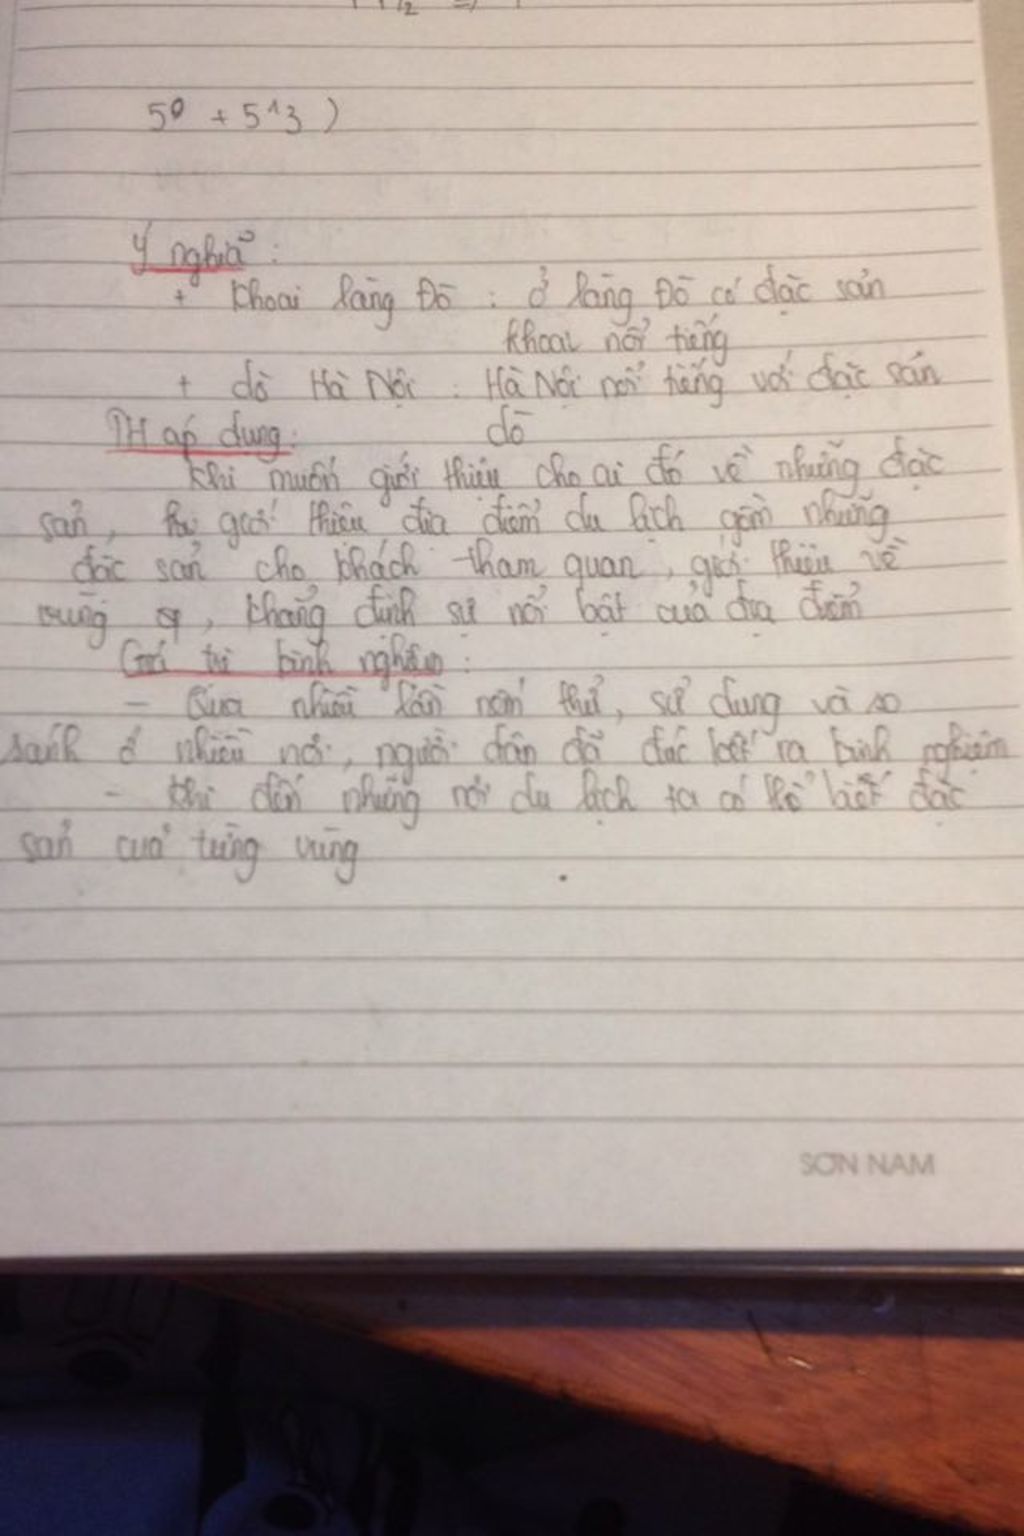 5⁰ + 5^3 )
Ý nghĩa :
+ Khoai làng Đồ : ở làng Đồ có đặc sản
khoai nổi tiếng
+ đồ Hà Nội : Hà Nội nổi tiếng với đặc sản
đồ
TH áp dụng :
Khi muốn giới thiệu cho ai đó về những đặc
sản, giới thiệu địa điểm du lịch gồm những
đặc sản cho khách tham quan, giới thiệu về
vùng, khẳng định sự nổi bật của địa điểm
Giá trị kinh nghiệm :
- Qua nhiều lần nếm thử, sử dụng và so
sánh ở nhiều nơi, người dân đã đúc kết ra kinh nghiệm
- Khi đến những nơi du lịch ta có thể biết đặc
sản của từng vùng
SƠN NAM